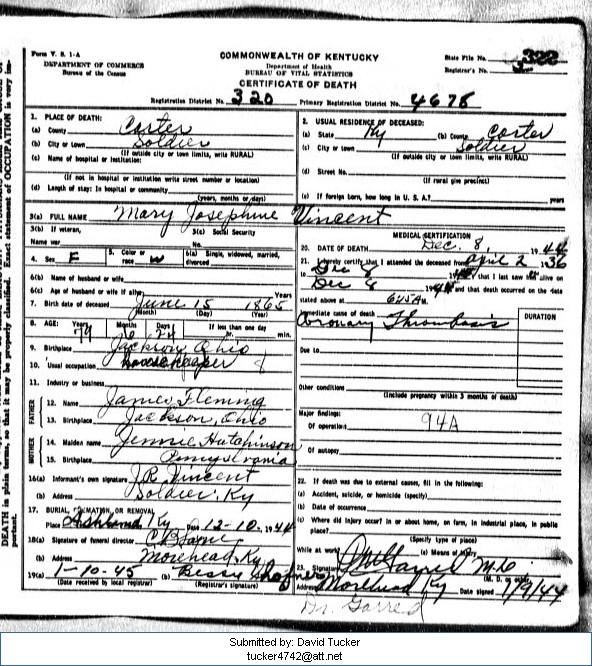 Form V. S. 1-A
DEPARTMENT OF COMMERCE
Bureau of the Census
COMMONWEALTH OF KENTUCKY
Department of Health
BUREAU OF VITAL STATISTICS
CERTIFICATE OF DEATH
State File No. 322
Registrar's No.
Registration District No. 320 Primary Registration District No. 4678
DEATH in plain terms, so that it may be properly classified. Exact statement of OCCUPATION is very important.
1. PLACE OF DEATH:
(a) County Carter
(b) City or town Soldier
(If outside city or town limits, write RURAL)
(c) Name of hospital or institution:
(If not in hospital or institution write street number or location)
(d) Length of stay: In hospital or community
(years, months or days)
2. USUAL RESIDENCE OF DECEASED:
(a) State Ky (b) County Carter
(c) City or town Soldier
(If outside city or town limits, write RURAL)
(d) Street No.
(If rural give precinct)
(e) If foreign born, how long in U. S. A.? years
3(a) FULL NAME Mary Josephine Vincent
3(b) If veteran, 3(c) Social Security
Name war No.
4. Sex F 5. Color or race W 6(a) Single, widowed, married, divorced
6(b) Name of husband or wife
6(c) Age of husband or wife if alive Years
7. Birth date of deceased June 15 1865
(Month) (Day) (Year)
8. AGE: Years Months Days If less than one day
79 hr. min.
9. Birthplace Jackson, Ohio
10. Usual occupation Housekeeper
11. Industry or business
FATHER
12. Name James Fleming
13. Birthplace Jackson, Ohio
MOTHER
14. Maiden name Jennie Hutchinson
15. Birthplace Pennsylvania
16(a) Informant's own signature J.R. Vincent
(b) Address Soldier, Ky
17. BURIAL, CREMATION, OR REMOVAL
Place Ashland Ky Date 12-10, 1944
18(a) Signature of funeral director
(b) Address Morehead, Ky
19(a) 1-10-45 (b) Bessy
(Date received by local registrar) (Registrar's signature)
MEDICAL CERTIFICATION
20. DATE OF DEATH Dec. 8 1944
21. I hereby certify that I attended the deceased from April 2 1936
to Dec 8 1944 that I last saw alive on
Dec 8 1944 and that death occurred on the date
stated above at 645 A M.
Immediate cause of death DURATION
Coronary Thrombosis
Due to
Other conditions
(Include pregnancy within 3 months of death)
Major findings:
Of operations 94A
Of autopsy
22. If death was due to external causes, fill in the following:
(a) Accident, suicide, or homicide (specify)
(b) Date of occurrence
(c) Where did injury occur? In or about home, on farm, in industrial place, in public place?
(Specify type of place)
While at work (e) Means of injury
23. Signature M.D
(M. D. or other)
Address Morehead Ky Date signed 1/9/44
Dr. Garred
Submitted by: David Tucker
tucker4742@att.net